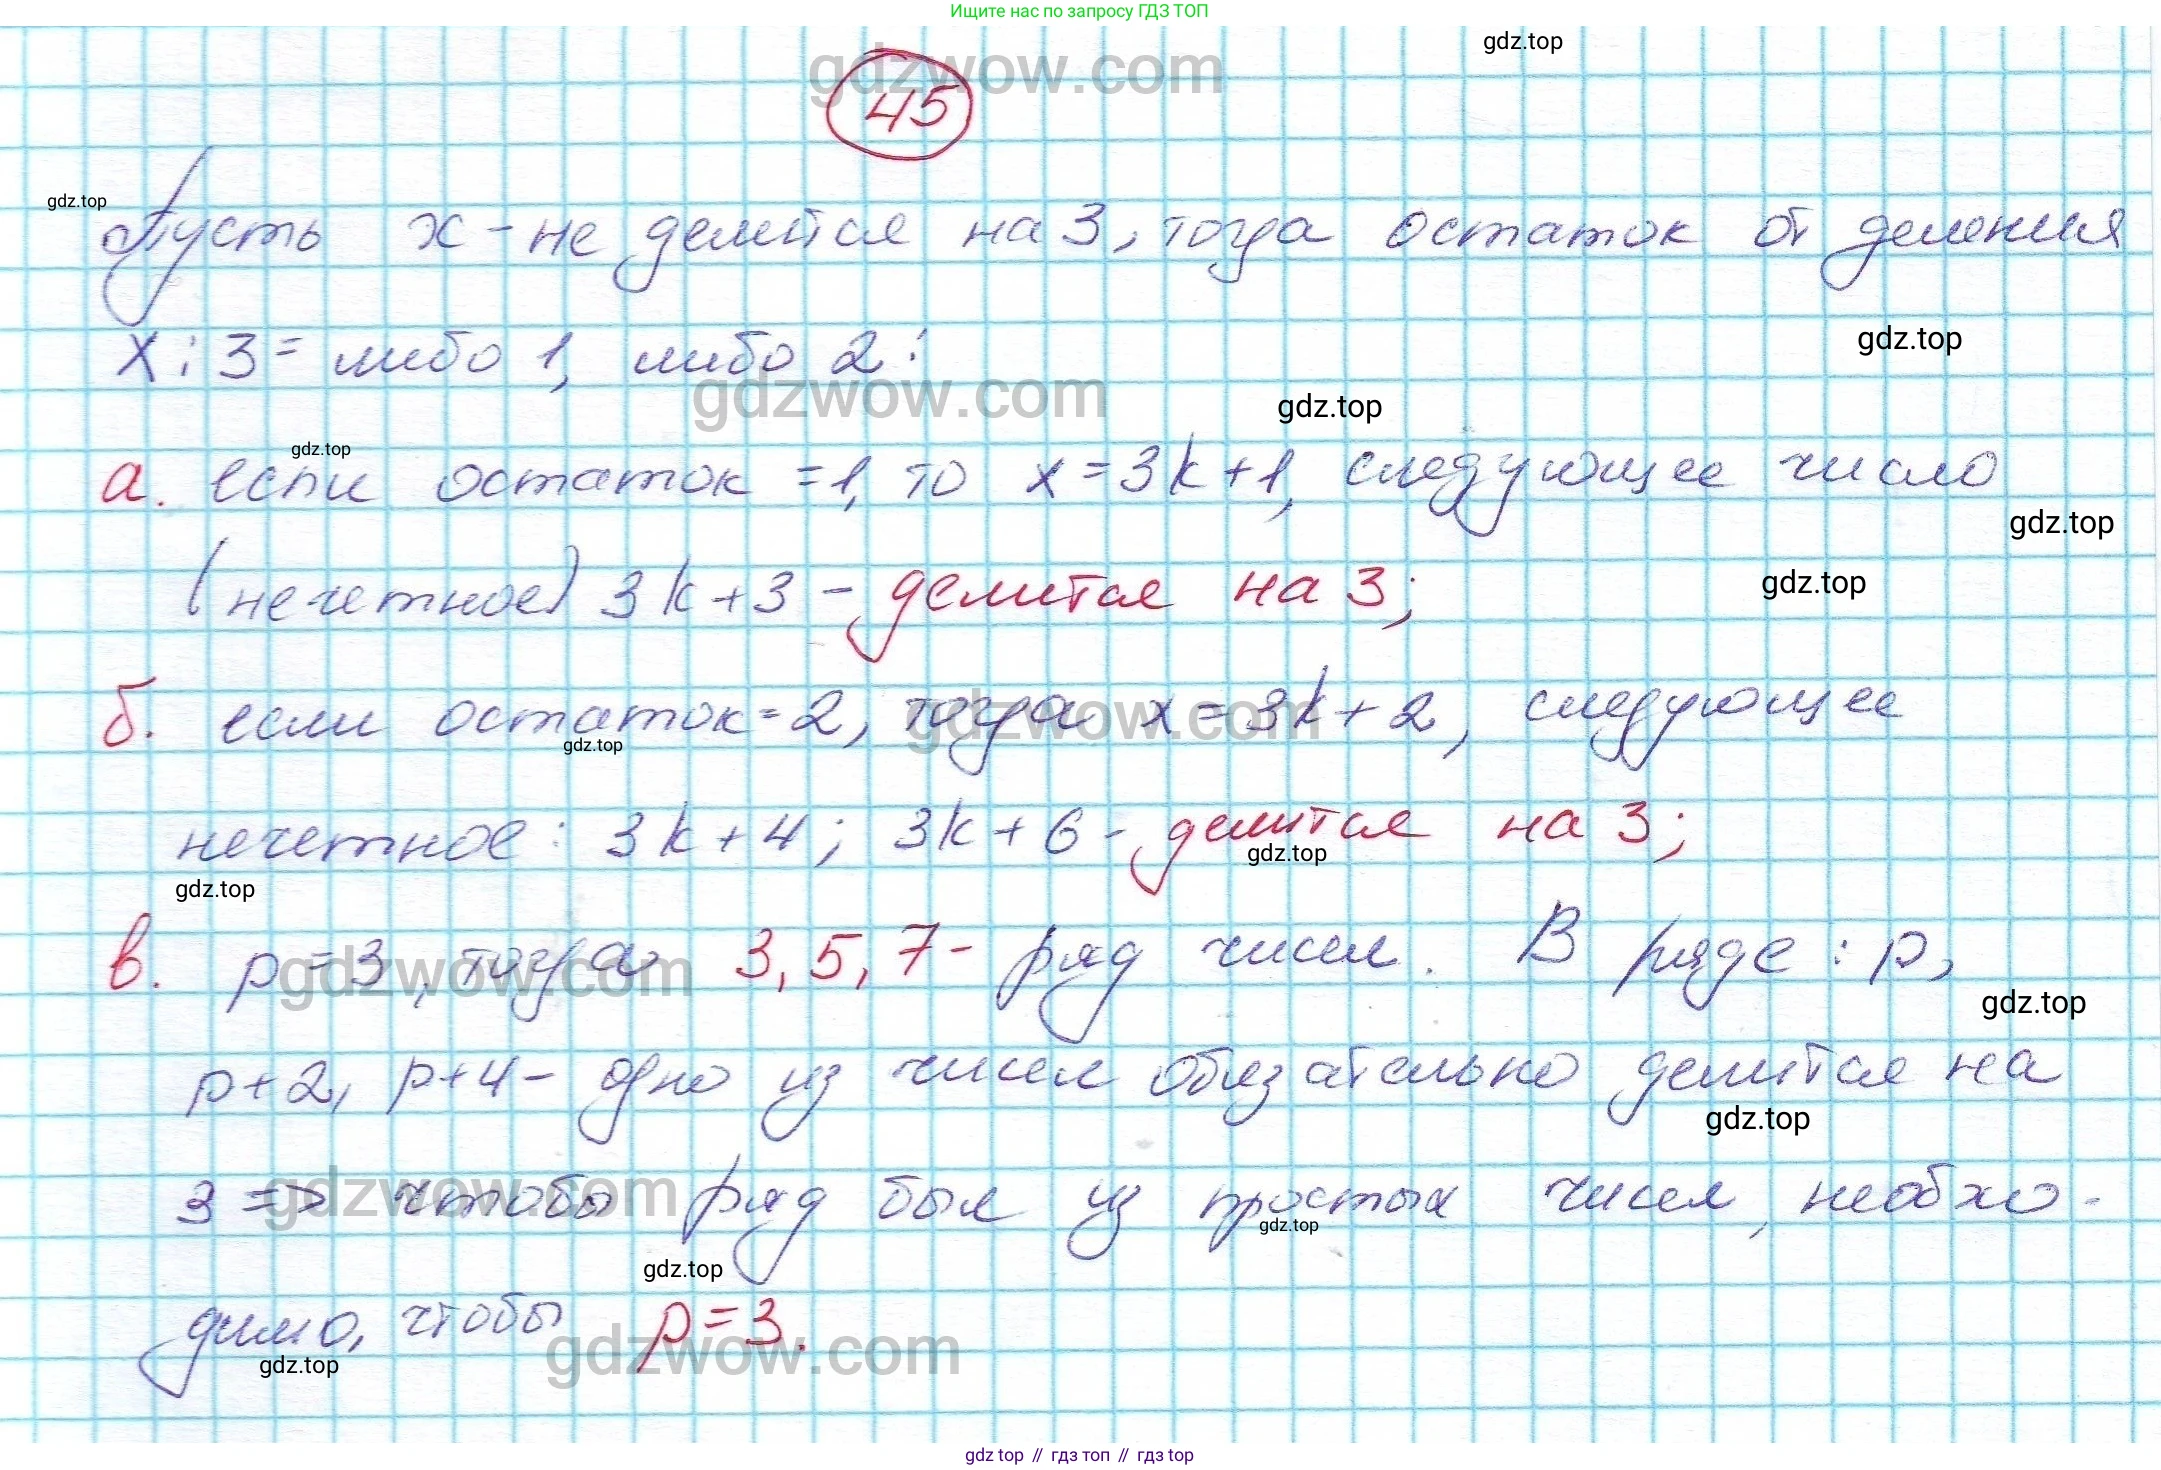 Ищите нас по запросу ГДЗ ТОП
gdz.top
gdzwow.com
45
gdz.top
Пусть x - не делится на 3, тогда остаток от деления
x : 3 = либо 1, либо 2:
gdz.top
gdzwow.com
gdz.top
gdz.top
а. если остаток = 1, то x = 3k + 1, следующее число
gdz.top
(нечетное) 3k + 3 - делится на 3;
gdz.top
б. если остаток = 2, тогда x = 3k + 2, следующее
gdzwow.com
gdz.top
нечетное: 3k + 4; 3k + 6 - делится на 3;
gdz.top
gdz.top
в. p = 3, тогда 3, 5, 7 - ряд чисел. В ряде: p,
gdzwow.com
gdz.top
p + 2, p + 4 - одно из чисел обязательно делится на
gdz.top
3 => чтобы ряд был из простых чисел, необхо-
gdzwow.com
gdz.top
gdz.top
димо, чтобы p = 3.
gdzwow.com
gdz.top
gdz.top // гдз топ // гдз top